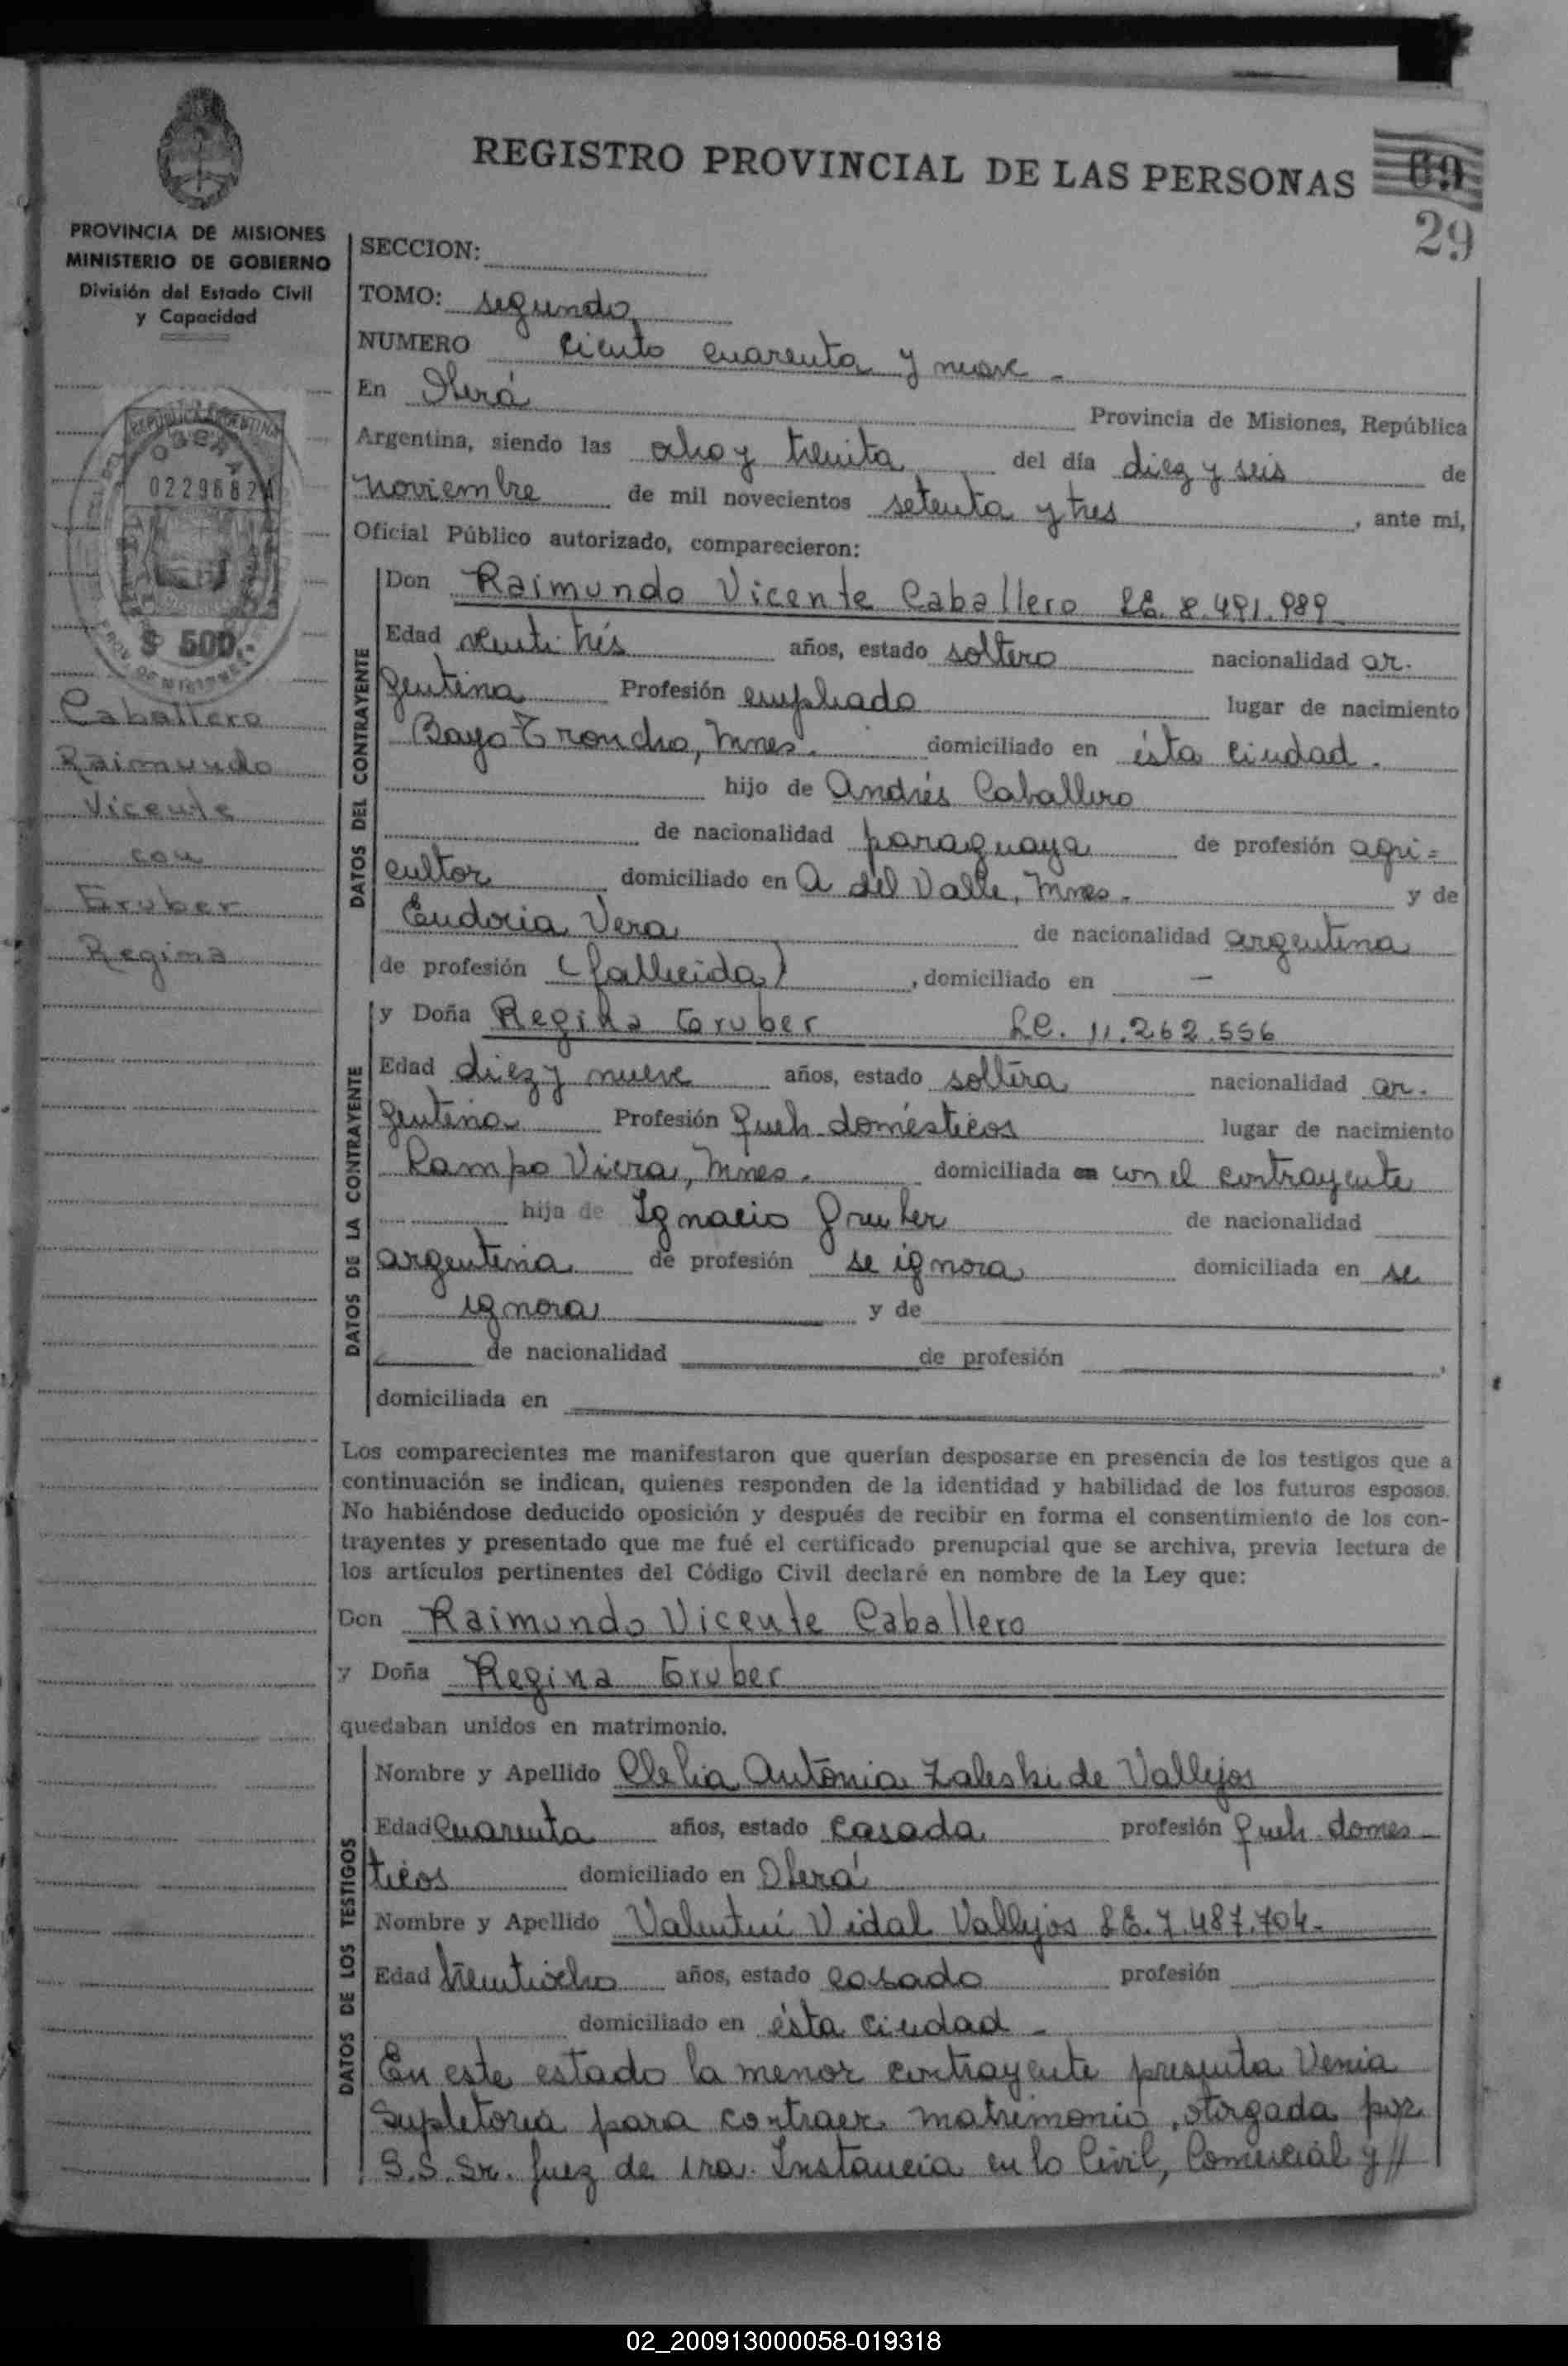 REGISTRO PROVINCIAL DE LAS PERSONAS
69
29
PROVINCIA DE MISIONES
MINISTERIO DE GOBIERNO
División del Estado Civil
y Capacidad
REPUBLICA ARGENTINA
0229682
$ 500.-
Caballero
Raimundo
Vicente
con
Gruber
Regina
SECCION:
TOMO: segundo
NUMERO ciento cuarenta y nueve -
En Oberá Provincia de Misiones, República
Argentina, siendo las ocho y treinta del día diez y seis de
noviembre de mil novecientos setenta y tres, ante mi,
Oficial Público autorizado, comparecieron:
DATOS DEL CONTRAYENTE
Don Raimundo Vicente Caballero LE. 8.491.989
Edad veinti trés años, estado soltero nacionalidad ar-
gentina Profesión empleado lugar de nacimiento
Bayo Troncho, Mnes. domiciliado en ésta ciudad.
hijo de Andrés Caballero
de nacionalidad paraguaya de profesión agri=
cultor domiciliado en A del Valle, Mnes. y de
Eudoria Vera de nacionalidad argentina
de profesión (fallecida), domiciliado en -
DATOS DE LA CONTRAYENTE
y Doña Regina Gruber LC. 11.262.556
Edad diez y nueve años, estado soltera nacionalidad ar-
gentina Profesión queh. domésticos lugar de nacimiento
Campo Viera, Mnes. domiciliada en con el contrayente
hija de Ignacio Gruber de nacionalidad
argentina de profesión se ignora domiciliada en se
ignora y de
de nacionalidad de profesión
domiciliada en
Los comparecientes me manifestaron que querían desposarse en presencia de los testigos que a
continuación se indican, quienes responden de la identidad y habilidad de los futuros esposos.
No habiéndose deducido oposición y después de recibir en forma el consentimiento de los con-
trayentes y presentado que me fué el certificado prenupcial que se archiva, previa lectura de
los artículos pertinentes del Código Civil declaré en nombre de la Ley que:
Don Raimundo Vicente Caballero
y Doña Regina Gruber
quedaban unidos en matrimonio.
DATOS DE LOS TESTIGOS
Nombre y Apellido Clelia Antonia Zaleski de Vallejos
Edad Cuarenta años, estado casada profesión queh. domes-
ticos domiciliado en Oberá
Nombre y Apellido Valentin Vidal Vallejos LE. 7.487.704-
Edad treintiocho años, estado casado profesión
domiciliado en ésta ciudad -
En este estado la menor contrayente presenta Venia
Supletoria para contraer matrimonio, otorgada por
S.S. Sr. Juez de 1ra. Instancia en lo Civil, Comercial y //
02_200913000058-019318